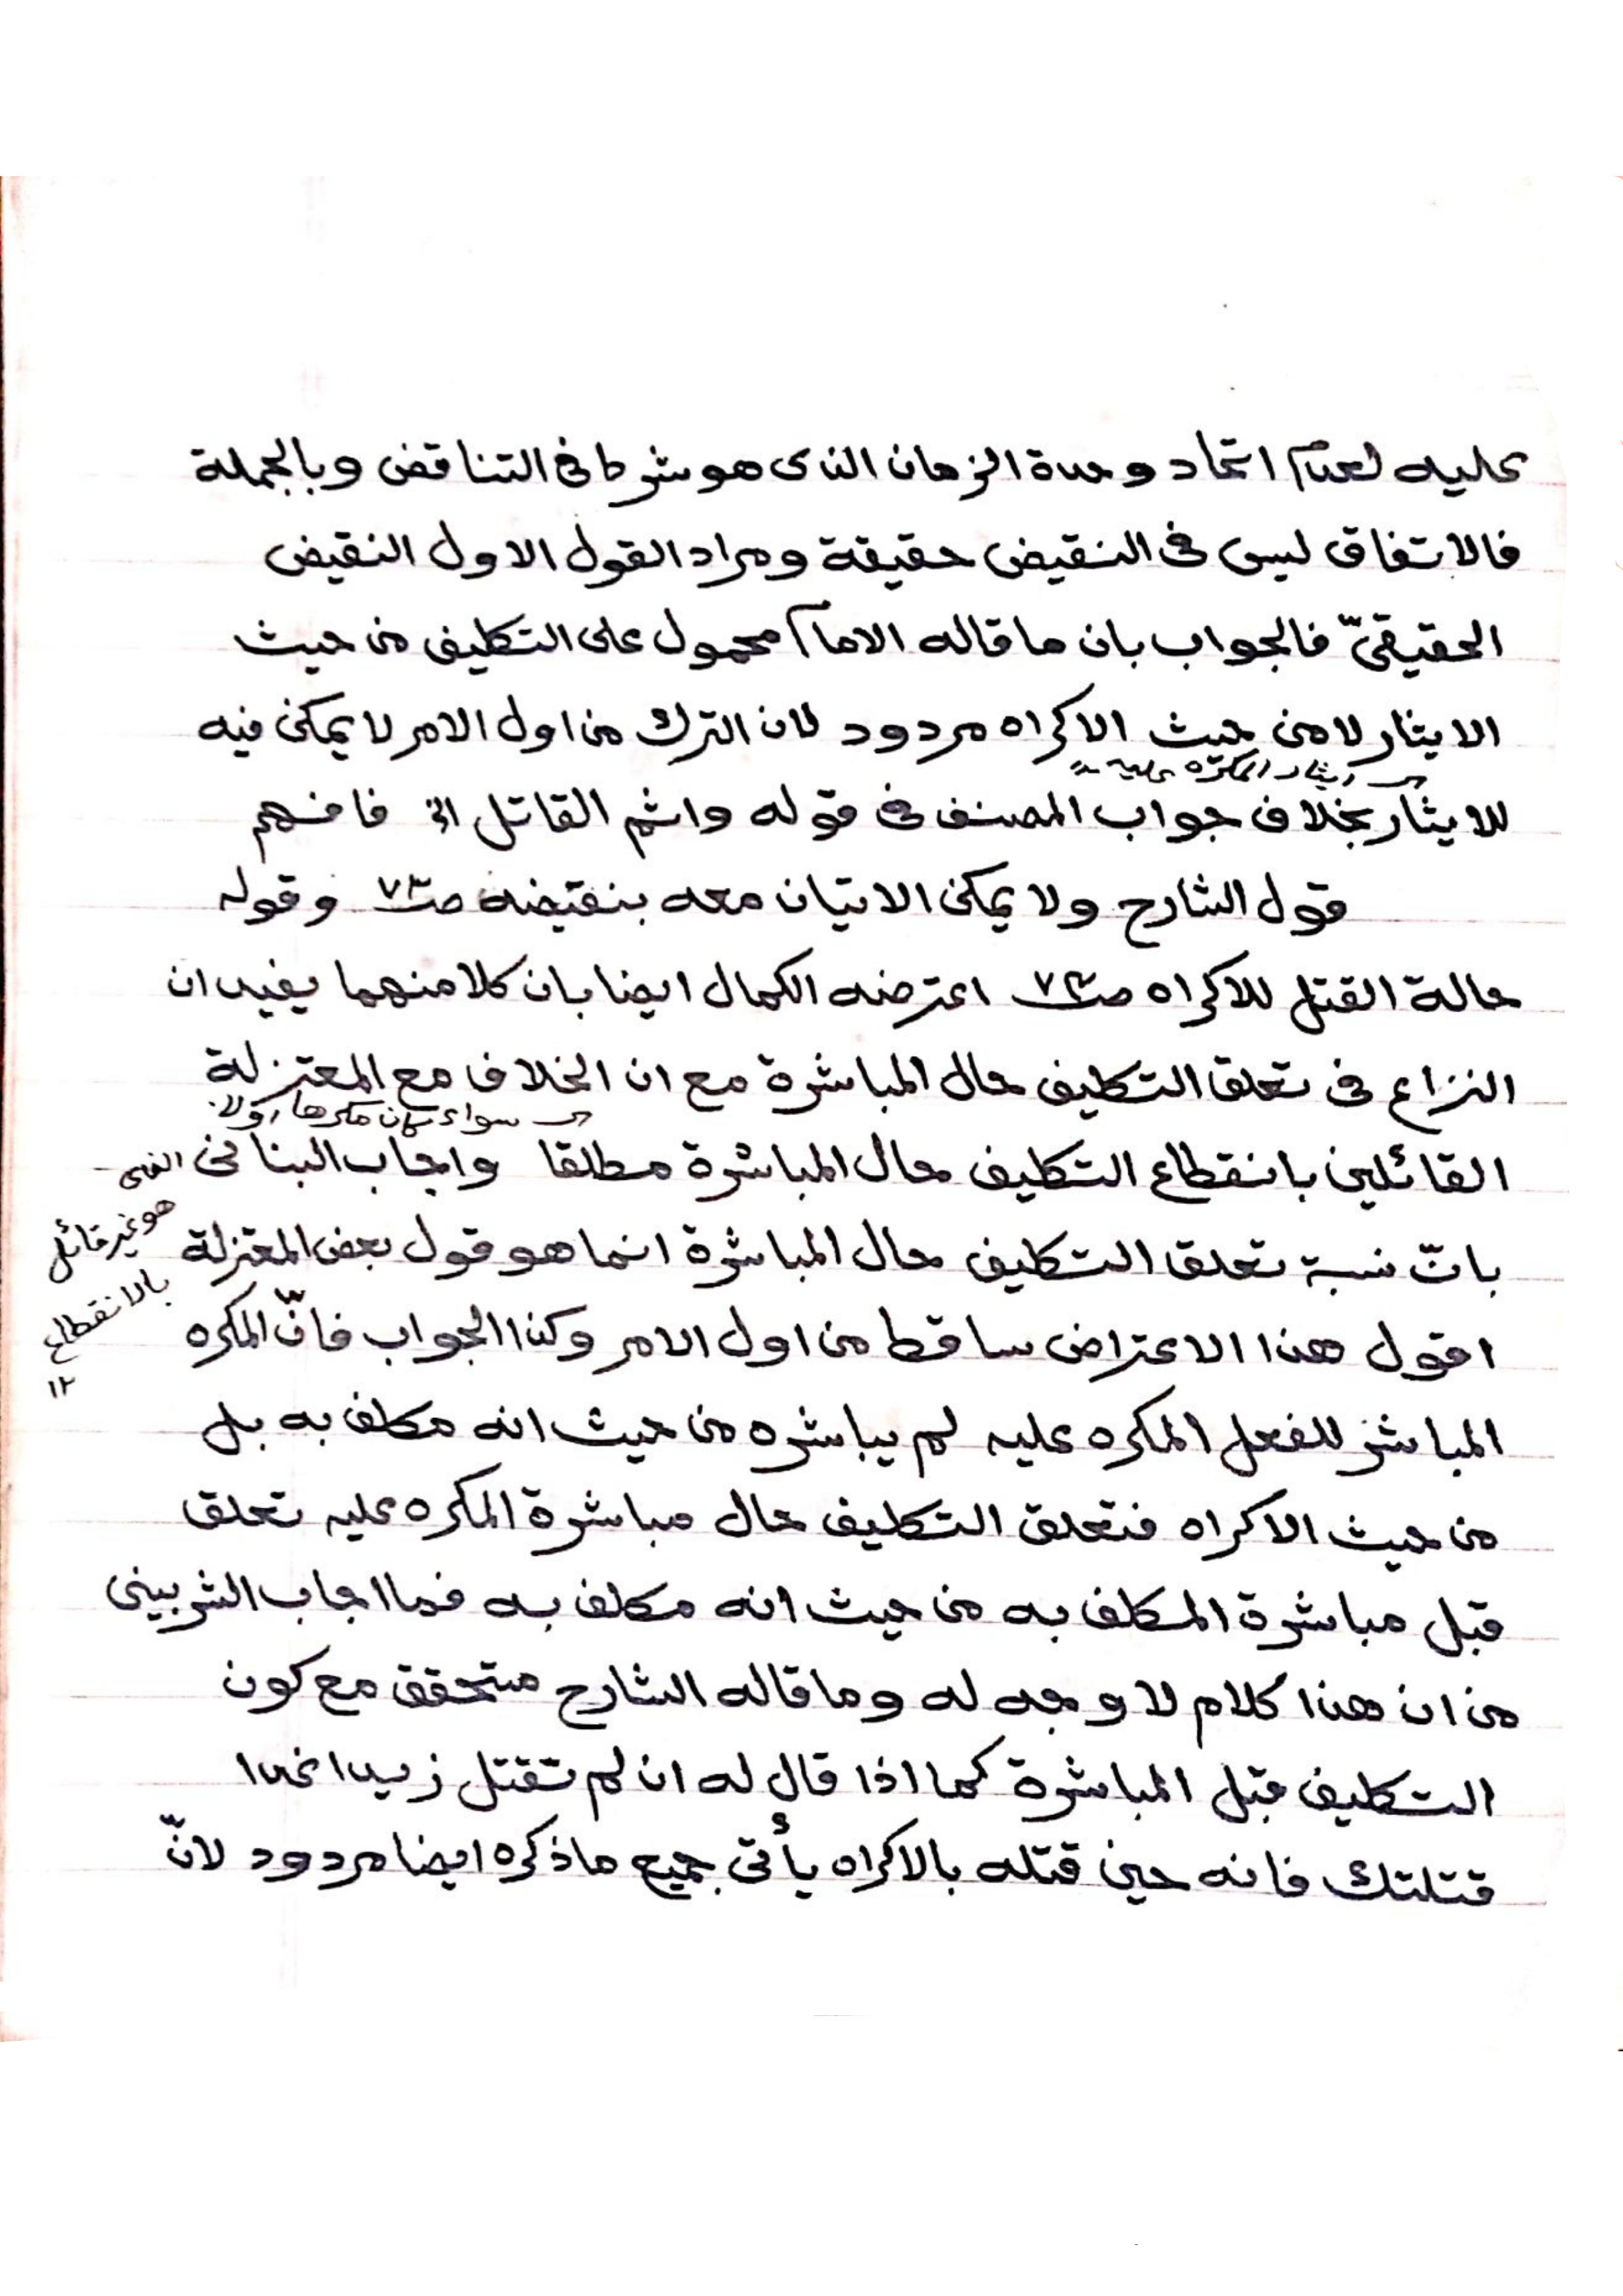 عليه لعدم اتحاد وحدة الزمان الذى هو شرط فى التناقض وبالجملة
فالاتفاق ليس فى النقيض حقيقة ومراد القول الاول النقيض
الحقيقىّ فالجواب بان ما قاله الامام محمول على التكليف من حيث
الايثار لا من حيث الاكراه مردود لان الترك من اول الامر لا يمكن فيه
ايثار المكره عليه
للايثار بخلاف جواب المصنف فى قوله واثم القاتل الخ فافهم
قول الشارح ولا يمكن الاتيان معه بنقيضه صـ٧٣ وقوله
حالة القتل للاكراه صـ٧٤ اعترضه الكمال ايضا بان كلا منهما يفيد ان
النزاع فى تعلق التكليف حال المباشرة مع ان الخلاف مع المعتزلة
سواء كان مكرها او لا
القائلين بانقطاع التكليف حال المباشرة مطلقا واجاب البنانى
بانّ نسبة تعلق التكليف حال المباشرة انما هو قول بعض المعتزلة
الذى
هو غير قائل
بالانقطاع
١٢
اقول هذا الاعتراض ساقط من اول الامر وكذا الجواب فانّ المكره
المباشر للفعل المكره عليه لم يباشره من حيث انه مكلف به بل
من حيث الاكراه فتعلق التكليف حال مباشرة المكره عليه تعلق
قبل مباشرة المكلف به من حيث انه مكلف به فما اجاب الشربينى
من ان هذا كلام لا وجه له وما قاله الشارح متحقق مع كون
التكليف قبل المباشرة كما اذا قال له ان لم تقتل زيدا غدا
قتلتك فانه حين قتله بالاكراه يأتى جميع ما ذكره ايضا مردود لانّ